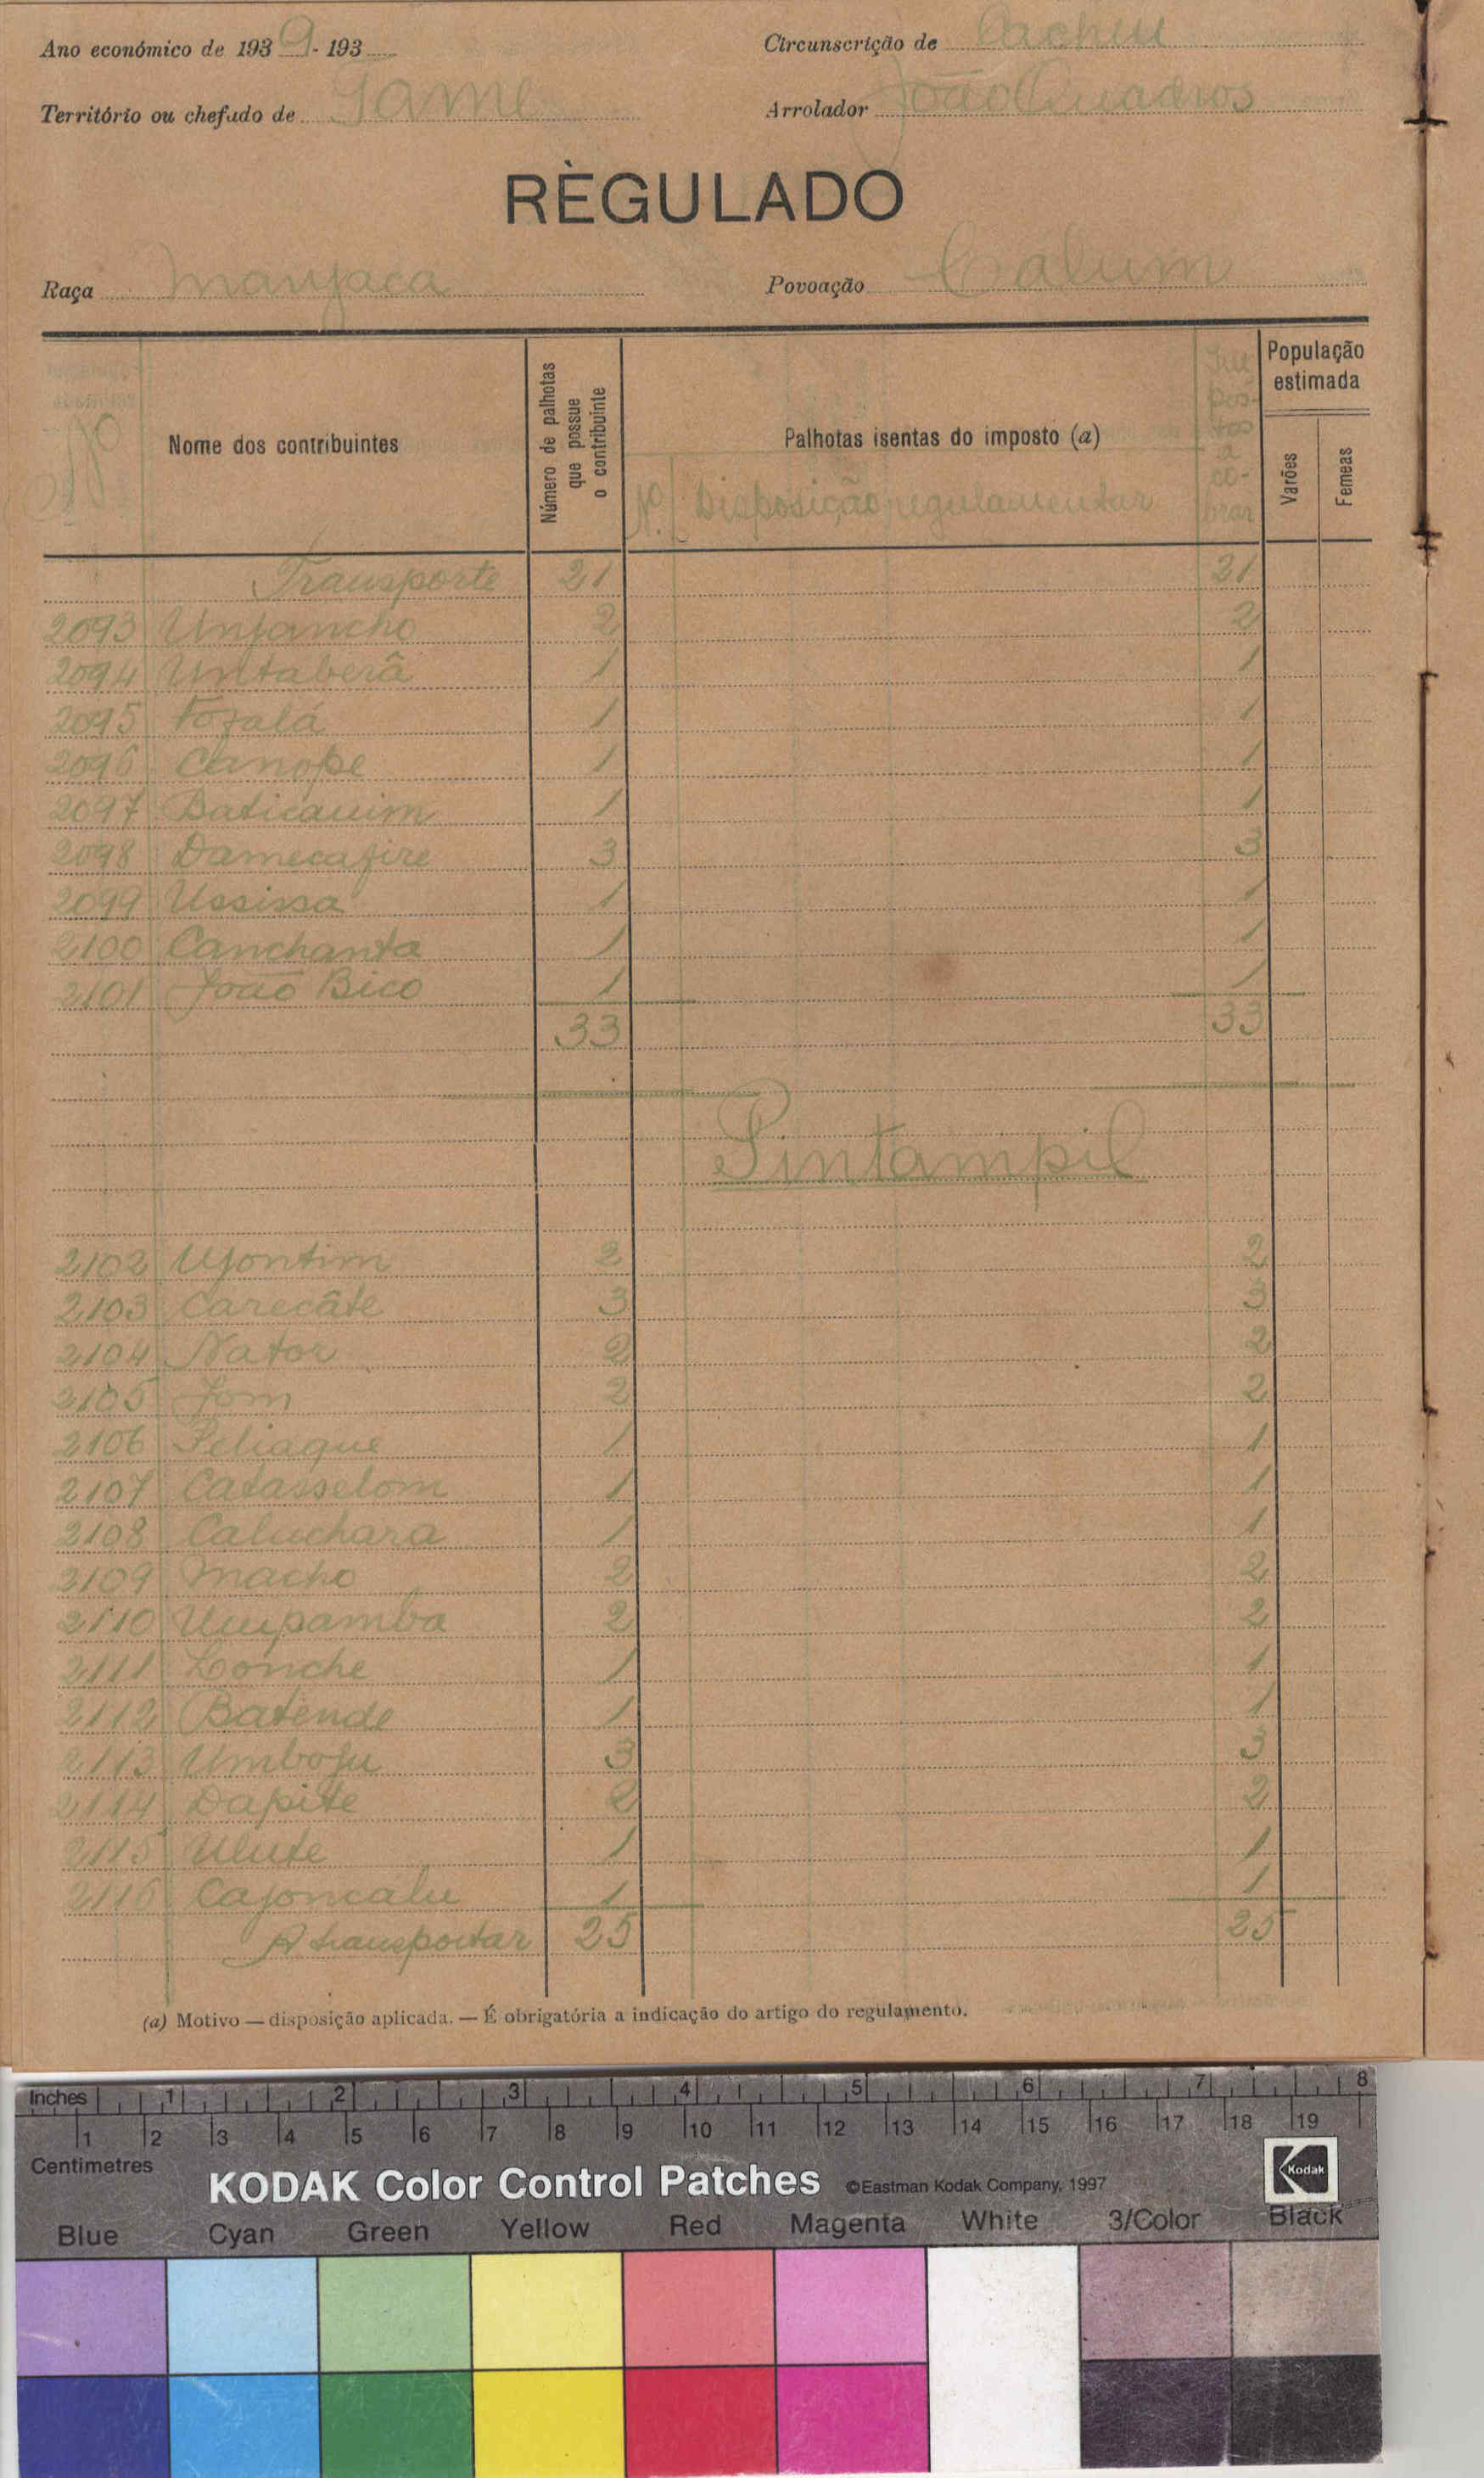 Ano económico de 1939-193
Circunscrição de Cacheu
Território ou chefado de Jame
Arrolador João Quadros
RÈGULADO
Raça Manjaca
Povoação Calum
Nº
Nome dos contribuintes
Número de palhotas que possue o contribuinte
Palhotas isentas do imposto (a)
Nº. Disposição regulamentar
Impostos a cobrar
População estimada
Varões
Femeas
Transporte 21 21
2093 Unjancho 2 2
2094 Untaberâ 1 1
2095 Fofalá 1 1
2096 Canope 1 1
2097 Baticauim 1 1
2098 Damecafire 3 3
2099 Ussissa 1 1
2100 Canchanta 1 1
2101 João Bico 1 1
33 33
Pintampil
2102 Ujontim 2 2
2103 Carecâte 3 3
2104 Nator 2 2
2105 Jom 2 2
2106 Peliaque 1 1
2107 Catasselom 1 1
2108 Caluchara 1 1
2109 Macho 2 2
2110 Uupamba 2 2
2111 Lonche 1 1
2112 Batende 1 1
2113 Umboju 3 3
2114 Dapite 2 2
2115 Ulute 1 1
2116 Cajoncalu 1 1
A transportar 25 25
(a) Motivo — disposição aplicada. — É obrigatória a indicação do artigo do regulamento.
Inches 1 2 3 4 5 6 7 8
1 2 3 4 5 6 7 8 9 10 11 12 13 14 15 16 17 18 19
Centimetres
KODAK Color Control Patches ©Eastman Kodak Company, 1997 Kodak
Blue Cyan Green Yellow Red Magenta White 3/Color Black